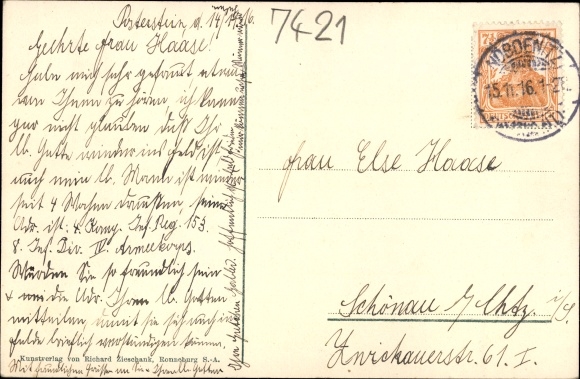 Posterstein d. 14. 11. 16.
7421
Geehrte Frau Haase!
Habe mich sehr gefreut etwas
von Ihnen zu hören, ich kann
gar nicht glauben daß Ihr
lb. Gatte wieder ins Feld ist
auch mein lb. Mann ist wieder
seit 4 Wochen draußen, seine
Adr. ist: 4. Komp. Inf. Reg. 153
8. Inf. Div. IV. Armeekorps.
Würden Sie so freundlich sein
u. mir die Adr. Ihres lb. Gatten
mitteilen, damit sie sich auch im
Felde brieflich verständigen können.
Mit freundlichen Grüßen an Sie u. Ihren lb. Gatten
Kunstverlag von Richard Zieschank, Ronneburg S.-A.
NÖBDENITZ
15.11.16.1-2
7½
Frau Else Haase
Schönau b/ Chtz. i/S.
Zwickauerstr. 61 I.